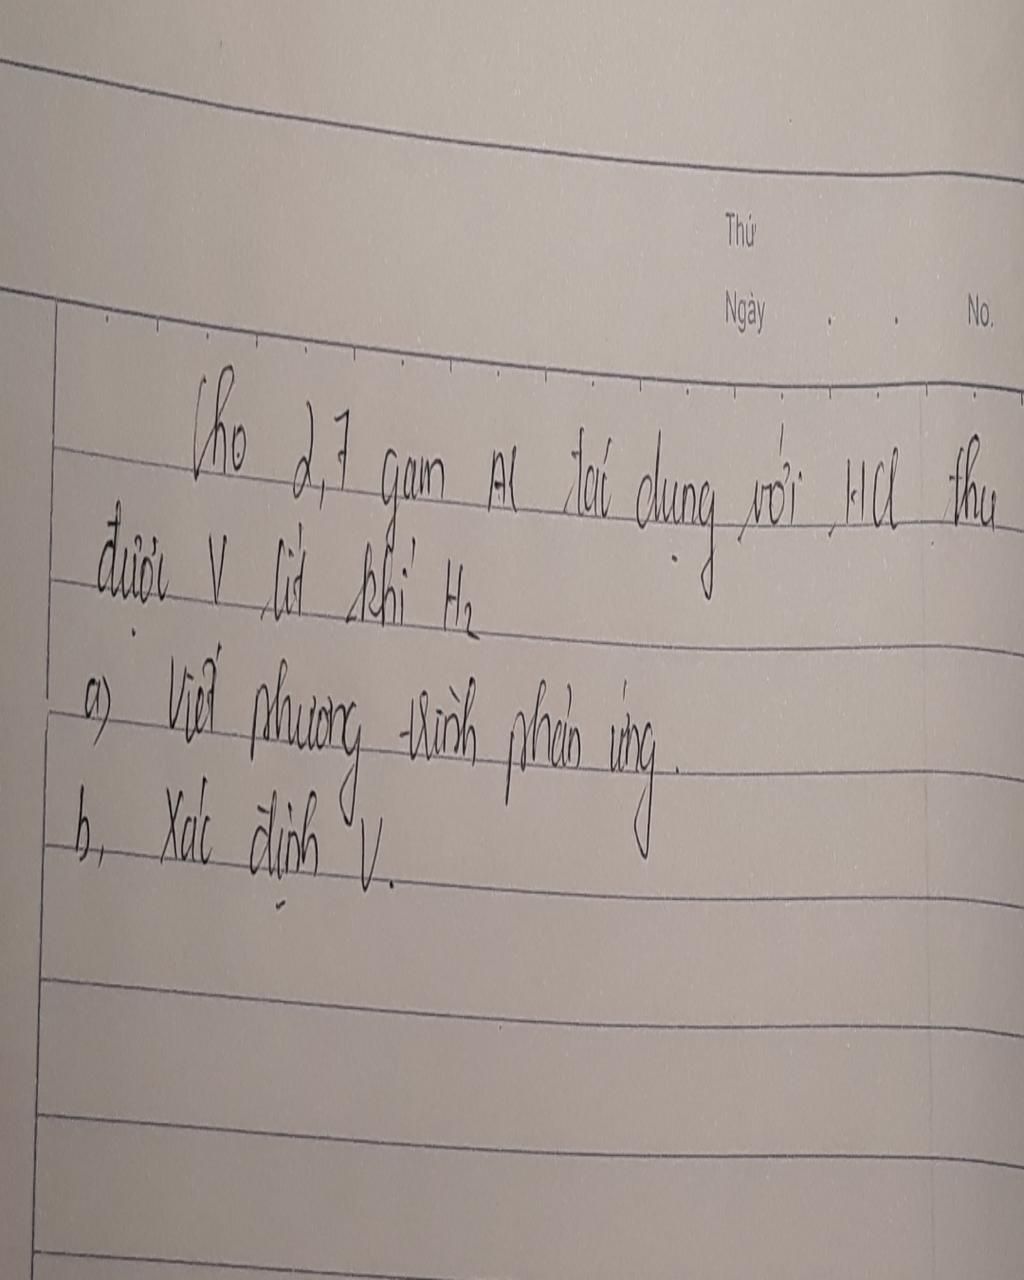 Thứ
Ngày . . No.
Cho 2,7 gam Al tác dụng với HCl thu
được V lít khí H₂
a) Viết phương trình phản ứng.
b, Xác định V.